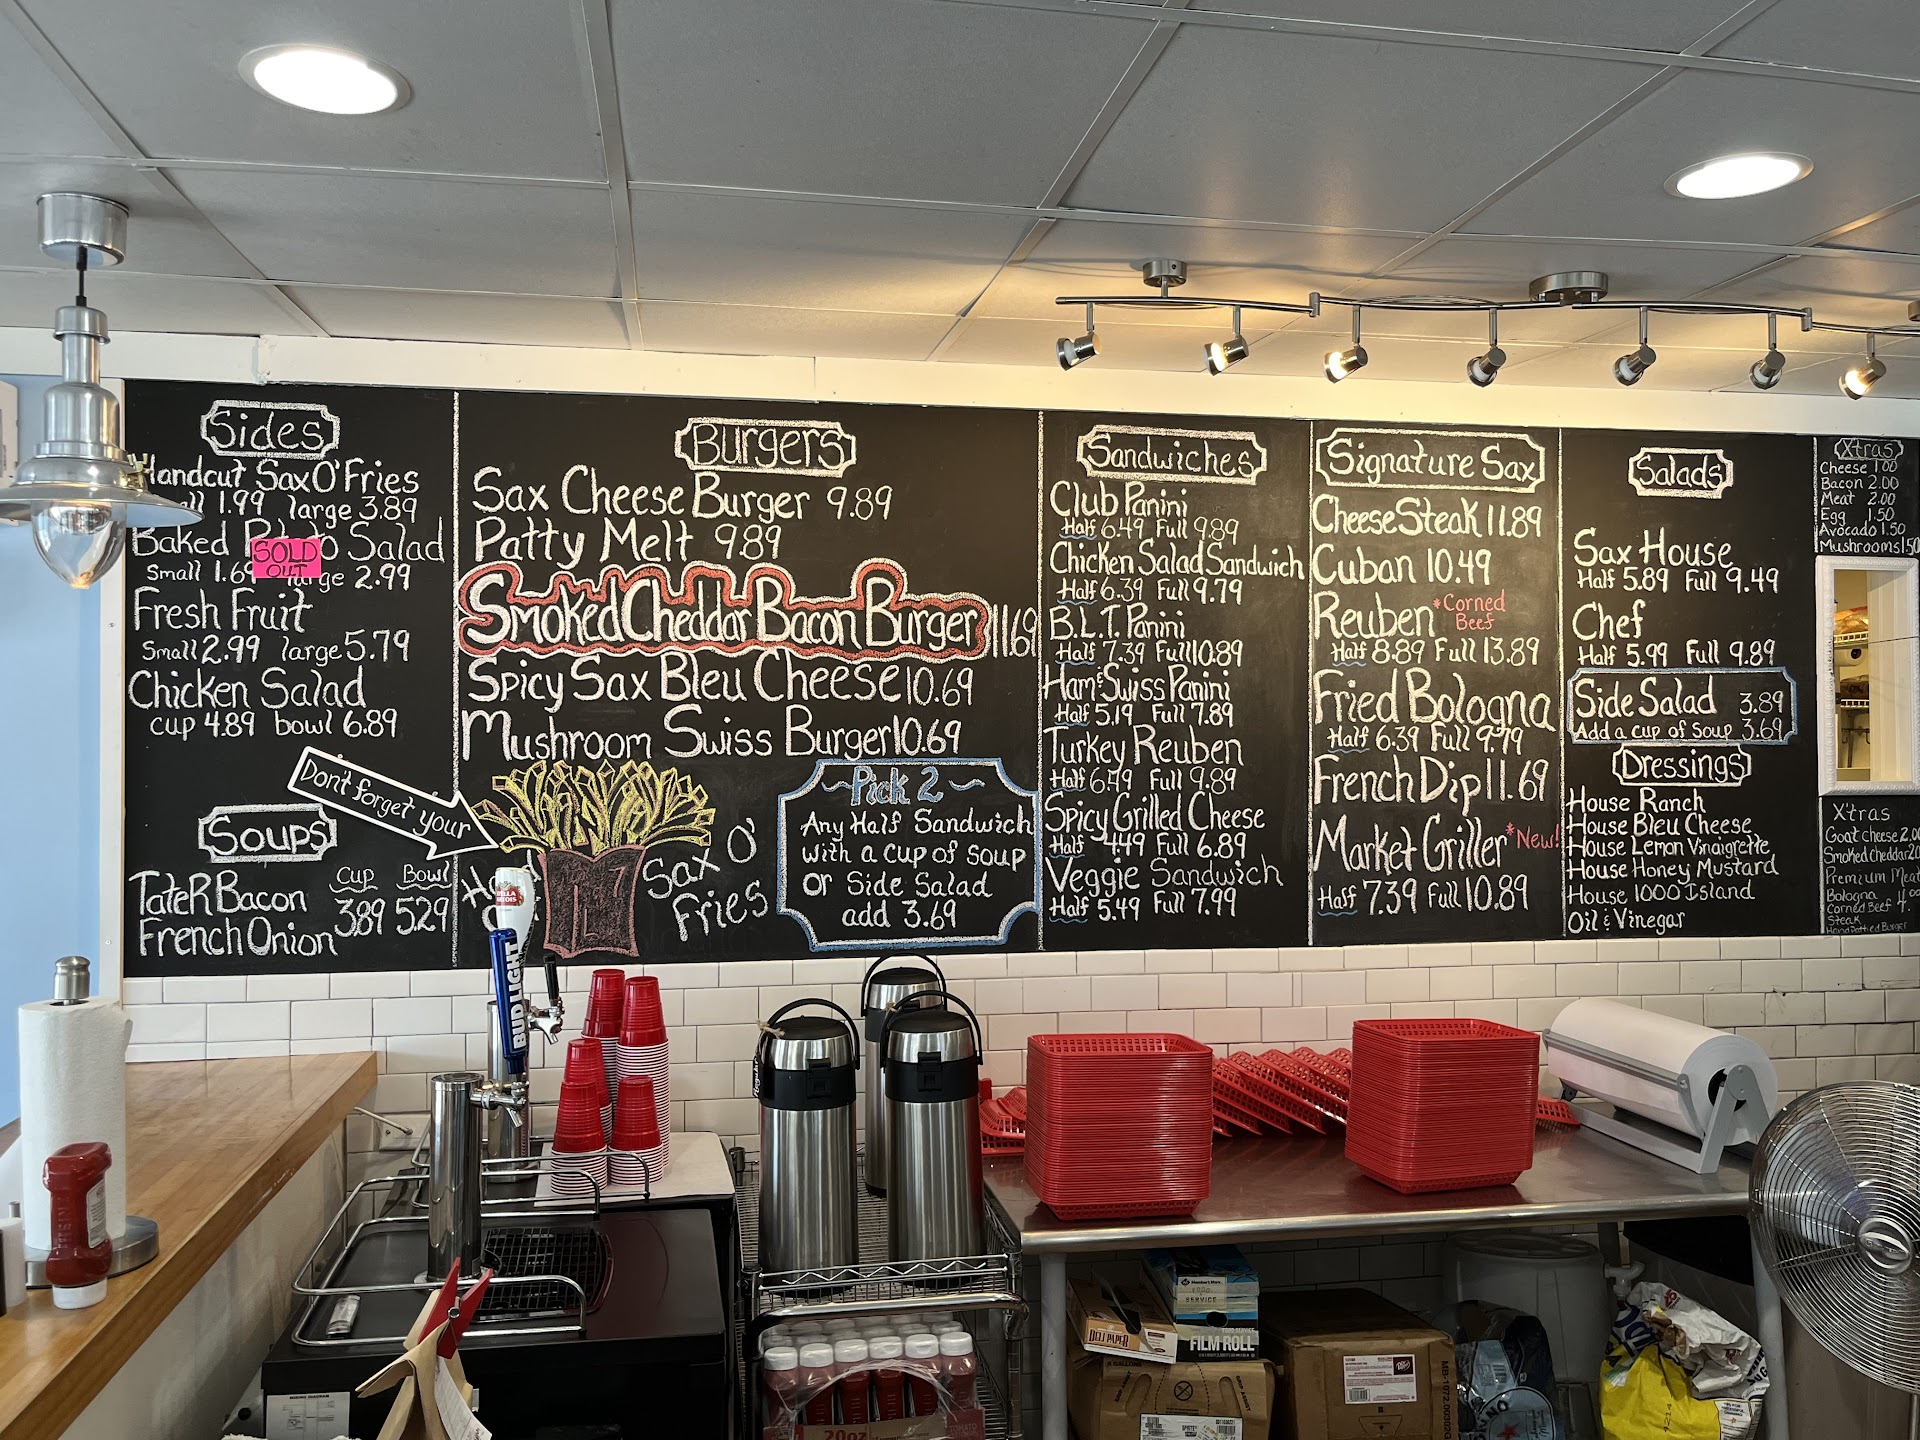 Sides
Handcut Sax O' Fries
1.99 large 3.89
Baked Potato Salad
SOLD
OUT
small 1.69 large 2.99
Fresh Fruit
Small 2.99 large 5.79
Chicken Salad
cup 4.89 bowl 6.89
Don't forget your
Soups
Cup Bowl
TateR Bacon
3.89 5.29
French Onion
Burgers
Sax Cheese Burger 9.89
Patty Melt 9.89
Smoked Cheddar Bacon Burger 11.69
Spicy Sax Bleu Cheese 10.69
Mushroom Swiss Burger 10.69
Sax O'
Fries
~Pick 2~
Any Half Sandwich
with a cup of soup
or Side Salad
add 3.69
Sandwiches
Club Panini
Half 6.49 Full 9.89
Chicken Salad Sandwich
Half 6.39 Full 9.79
B.L.T. Panini
Half 7.39 Full 10.89
Ham & Swiss Panini
Half 5.19 Full 7.89
Turkey Reuben
Half 6.49 Full 9.89
Spicy Grilled Cheese
Half 4.49 Full 6.89
Veggie Sandwich
Half 5.49 Full 7.99
Signature Sax
Cheese Steak 11.89
Cuban 10.49
Reuben *Corned
Beef
Half 8.89 Full 13.89
Fried Bologna
Half 6.39 Full 9.79
French Dip 11.69
Market Griller *New!
Half 7.39 Full 10.89
Salads
Sax House
Half 5.89 Full 9.49
Chef
Half 5.99 Full 9.89
Side Salad 3.89
Add a cup of soup 3.69
Dressings
House Ranch
House Bleu Cheese
House Lemon Vinaigrette
House Honey Mustard
House 1000 Island
Oil & Vinegar
Xtras
Cheese 1.00
Bacon 2.00
Meat 2.00
Egg 1.50
Avocado 1.50
Mushrooms 1.50
X'tras
Goat cheese 2.00
Smoked cheddar 2.0
Premium Meat
Bologna
Corned Beef 4.
Steak
Hand Pattied Burger
BUD LIGHT
DELI PAPER
FOOD
SERVICE
FILM ROLL
20oz